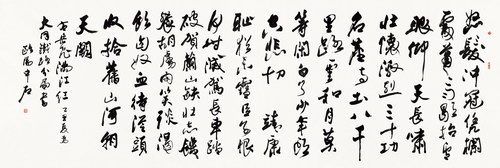 怒髮衝冠憑欄
處瀟瀟雨歇抬望
眼仰天長嘯
壯懷激烈三十功
名塵與土八千
里路雲和月莫
等閒白了少年頭
空悲切 靖康
恥猶未雪臣子恨
何時滅駕長車踏
破賀蘭山缺壯志飢
餐胡虜肉笑談渴
飲匈奴血待從頭
收拾舊山河朝
天闕
岳飛滿江紅
大同鐵路分局
歐陽中石